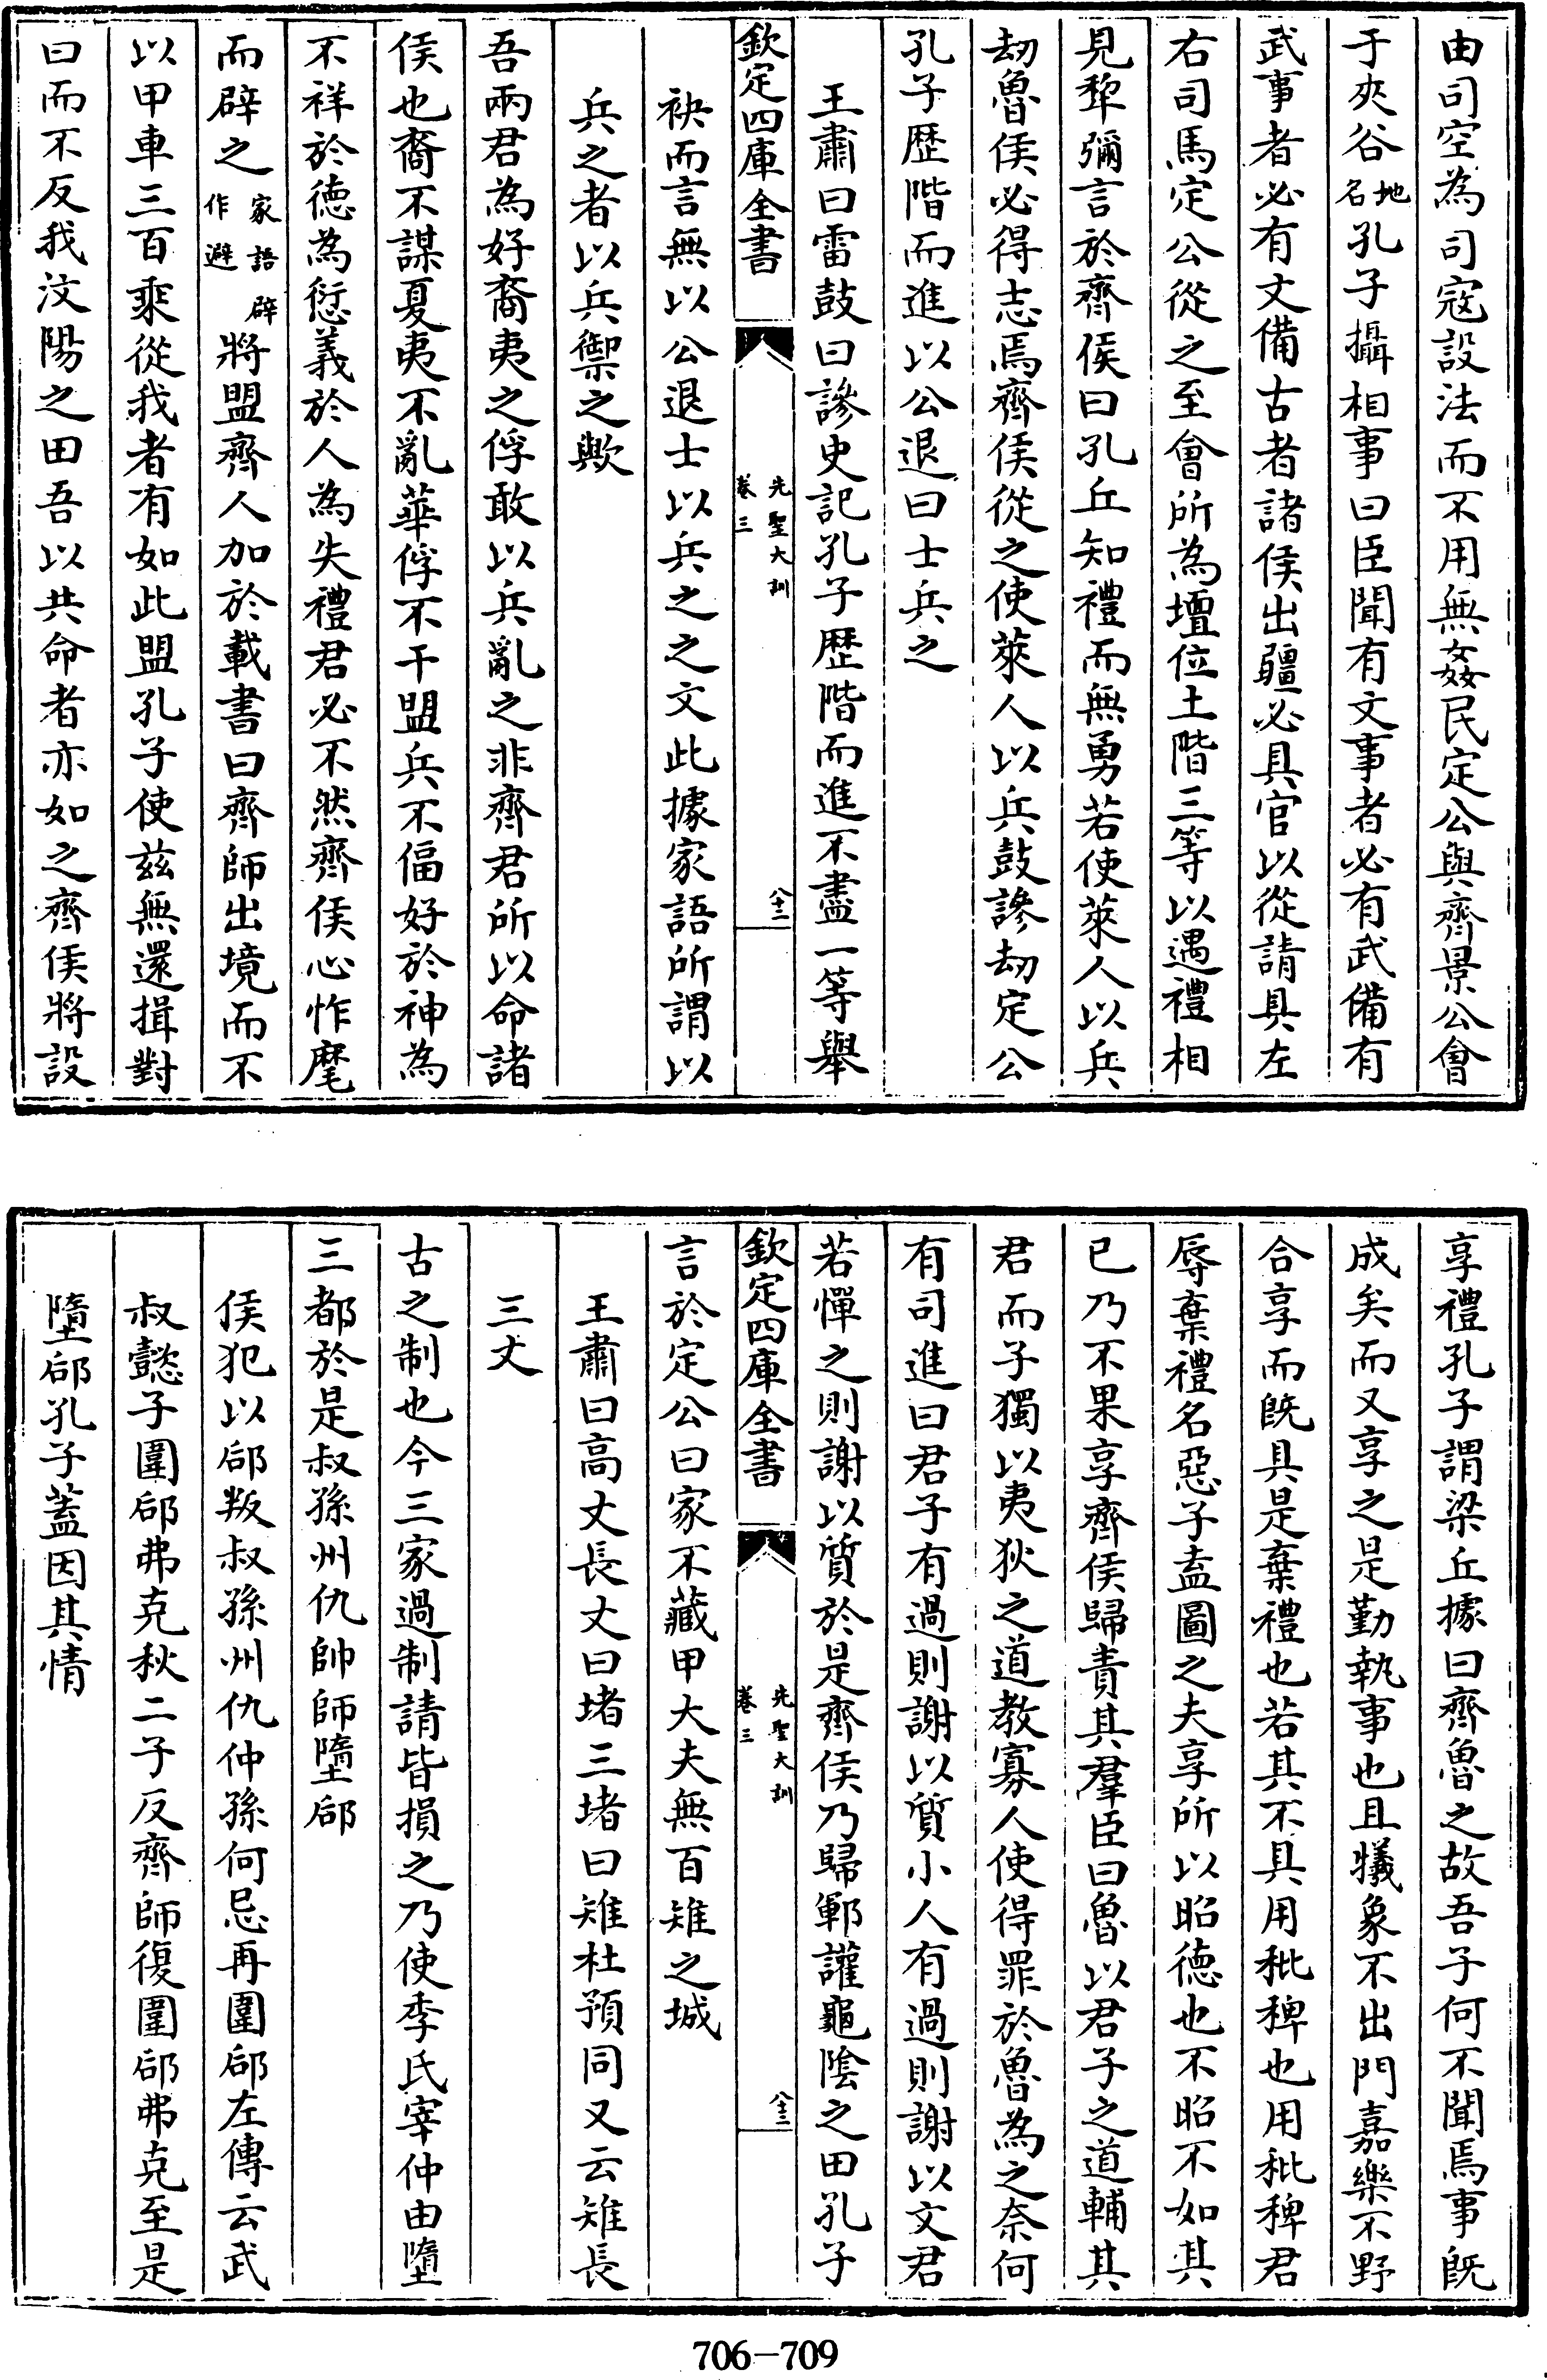 由司空為司宼設法而不用無姦民定公與齊景公會
于夾谷地名孔子攝相事曰臣聞有文事者必有武備有
武事者必有文備古者諸侯出疆必具官以從請具左
右司馬定公從之至會所為壇位土階三等以遇禮相
見犂彌言於齊侯曰孔丘知禮而無勇若使萊人以兵
劫魯侯必得志焉齊侯從之使萊人以兵鼓謲劫定公
孔子歴階而進以公退曰士兵之
王肅曰雷鼓曰謲史記孔子歴階而進不盡一等舉
欽定四庫全書
先聖大訓
卷三
八十二
袂而言無以公退士以兵之之文此據家語所謂以
兵之者以兵禦之歟
吾兩君為好裔夷之俘敢以兵亂之非齊君所以命諸
侯也裔不謀夏夷不亂華俘不干盟兵不偪好於神為
不祥於徳為愆義於人為失禮君必不然齊侯心怍麾
而辟之家語辟作避將盟齊人加於載書曰齊師出境而不
以甲車三百乘從我者有如此盟孔子使兹無還揖對
曰而不反我汶陽之田吾以共命者亦如之齊侯將設
享禮孔子謂梁丘據曰齊魯之故吾子何不聞焉事旣
成矣而又享之是勤執事也且犧象不出門嘉樂不野
合享而旣具是棄禮也若其不具用秕稗也用秕稗君
辱棄禮名惡子盍圖之夫享所以昭徳也不昭不如其
已乃不果享齊侯歸責其羣臣曰魯以君子之道輔其
君而子獨以夷狄之道教寡人使得罪於魯為之奈何
有司進曰君子有過則謝以質小人有過則謝以文君
若憚之則謝以質於是齊侯乃歸鄆讙龜陰之田孔子
欽定四庫全書
先聖大訓
卷三
八十三
言於定公曰家不藏甲大夫無百雉之城
王肅曰高丈長丈曰堵三堵曰雉杜預同又云雉長
三丈
古之制也今三家過制請皆損之乃使季氏宰仲由墮
三都於是叔孫州仇帥師墮郈
侯犯以郈叛叔孫州仇仲孫何忌再圍郈左傳云武
叔懿子圍郈弗克秋二子及齊師復圍郈弗克至是
墮郈孔子蓋因其情
706-709